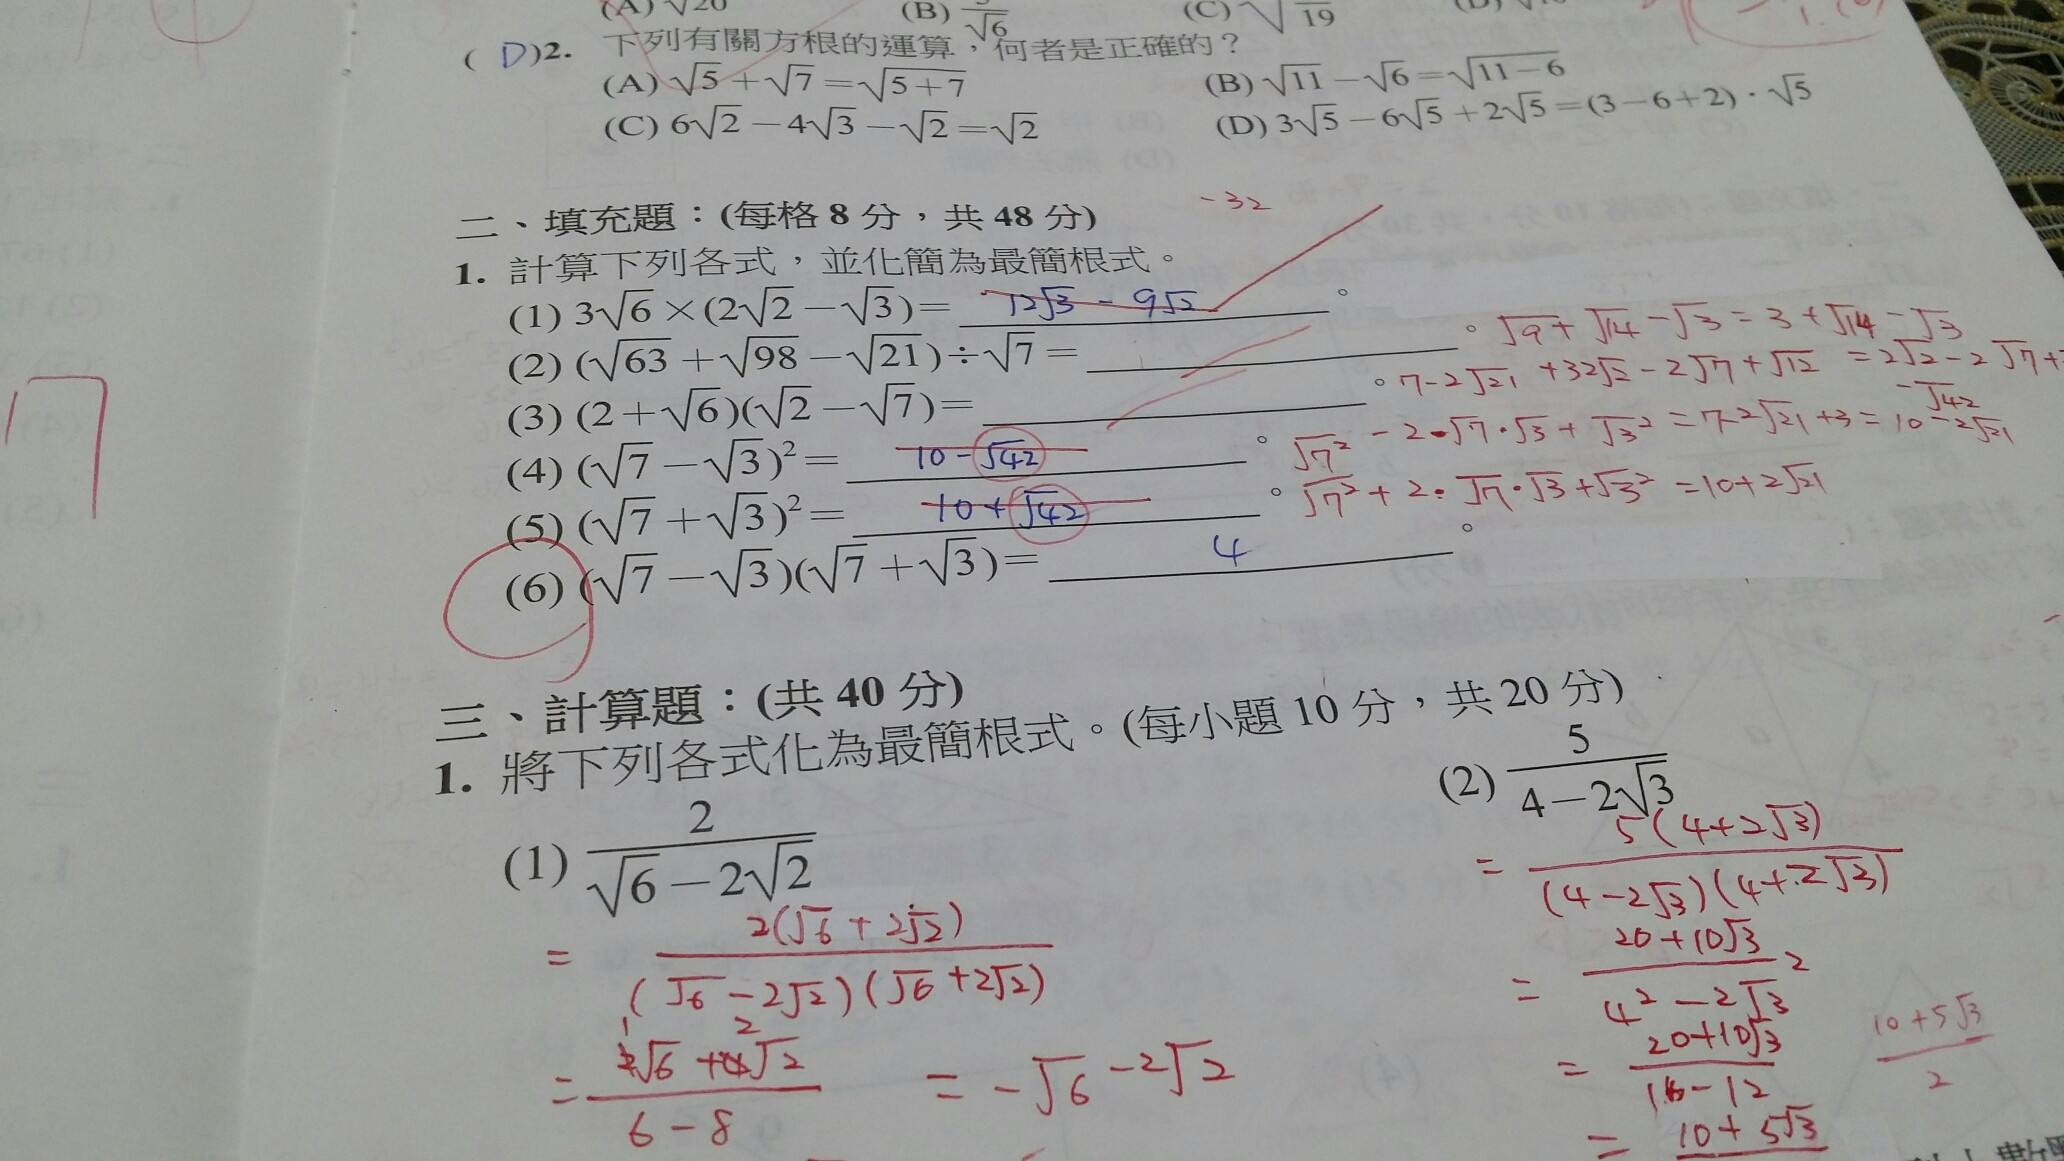 (A) √20 (B) √6 (C) √19
( D )2. 下列有關方根的運算，何者是正確的？
(A) √5 + √7 = √(5+7) (B) √11 − √6 = √(11−6)
(C) 6√2 − 4√3 − √2 = √2 (D) 3√5 − 6√5 + 2√5 = (3−6+2)·√5
二、填充題：(每格 8 分，共 48 分) -32
1. 計算下列各式，並化簡為最簡根式。
(1) 3√6 ×(2√2 − √3) = 12√3 - 9√2 。
(2) (√63 + √98 − √21) ÷ √7 = 。 √9 + √14 - √3 = 3 + √14 - √3
(3) (2 + √6)(√2 − √7) = 。 7-2√21 +32√2 - 2√7 + √12 = 2√2 - 2√7 +
-√42
(4) (√7 − √3)² = 10 - √42 。 √7² - 2·√7·√3 + √3² = 7-2√21 +3 = 10 - 2√21
(5) (√7 + √3)² = 10 + √42 。 √7² + 2·√7·√3 + √3² = 10 + 2√21
(6) (√7 − √3)(√7 + √3) = 4 。
三、計算題：(共 40 分)
1. 將下列各式化為最簡根式。(每小題 10 分，共 20 分)
(1) 2/(√6 − 2√2) (2) 5/(4 − 2√3)
= 2(√6 + 2√2)/((√6 - 2√2)(√6 + 2√2)) = 5(4+2√3)/((4-2√3)(4+2√3))
= (20+10√3)/(4² - 2√3²)
1 2
= (2√6 + 4√2)/(6 - 8) = -√6 - 2√2 = (20+10√3)/(16-12) (10+5√3)/2
= 10 + 5√3